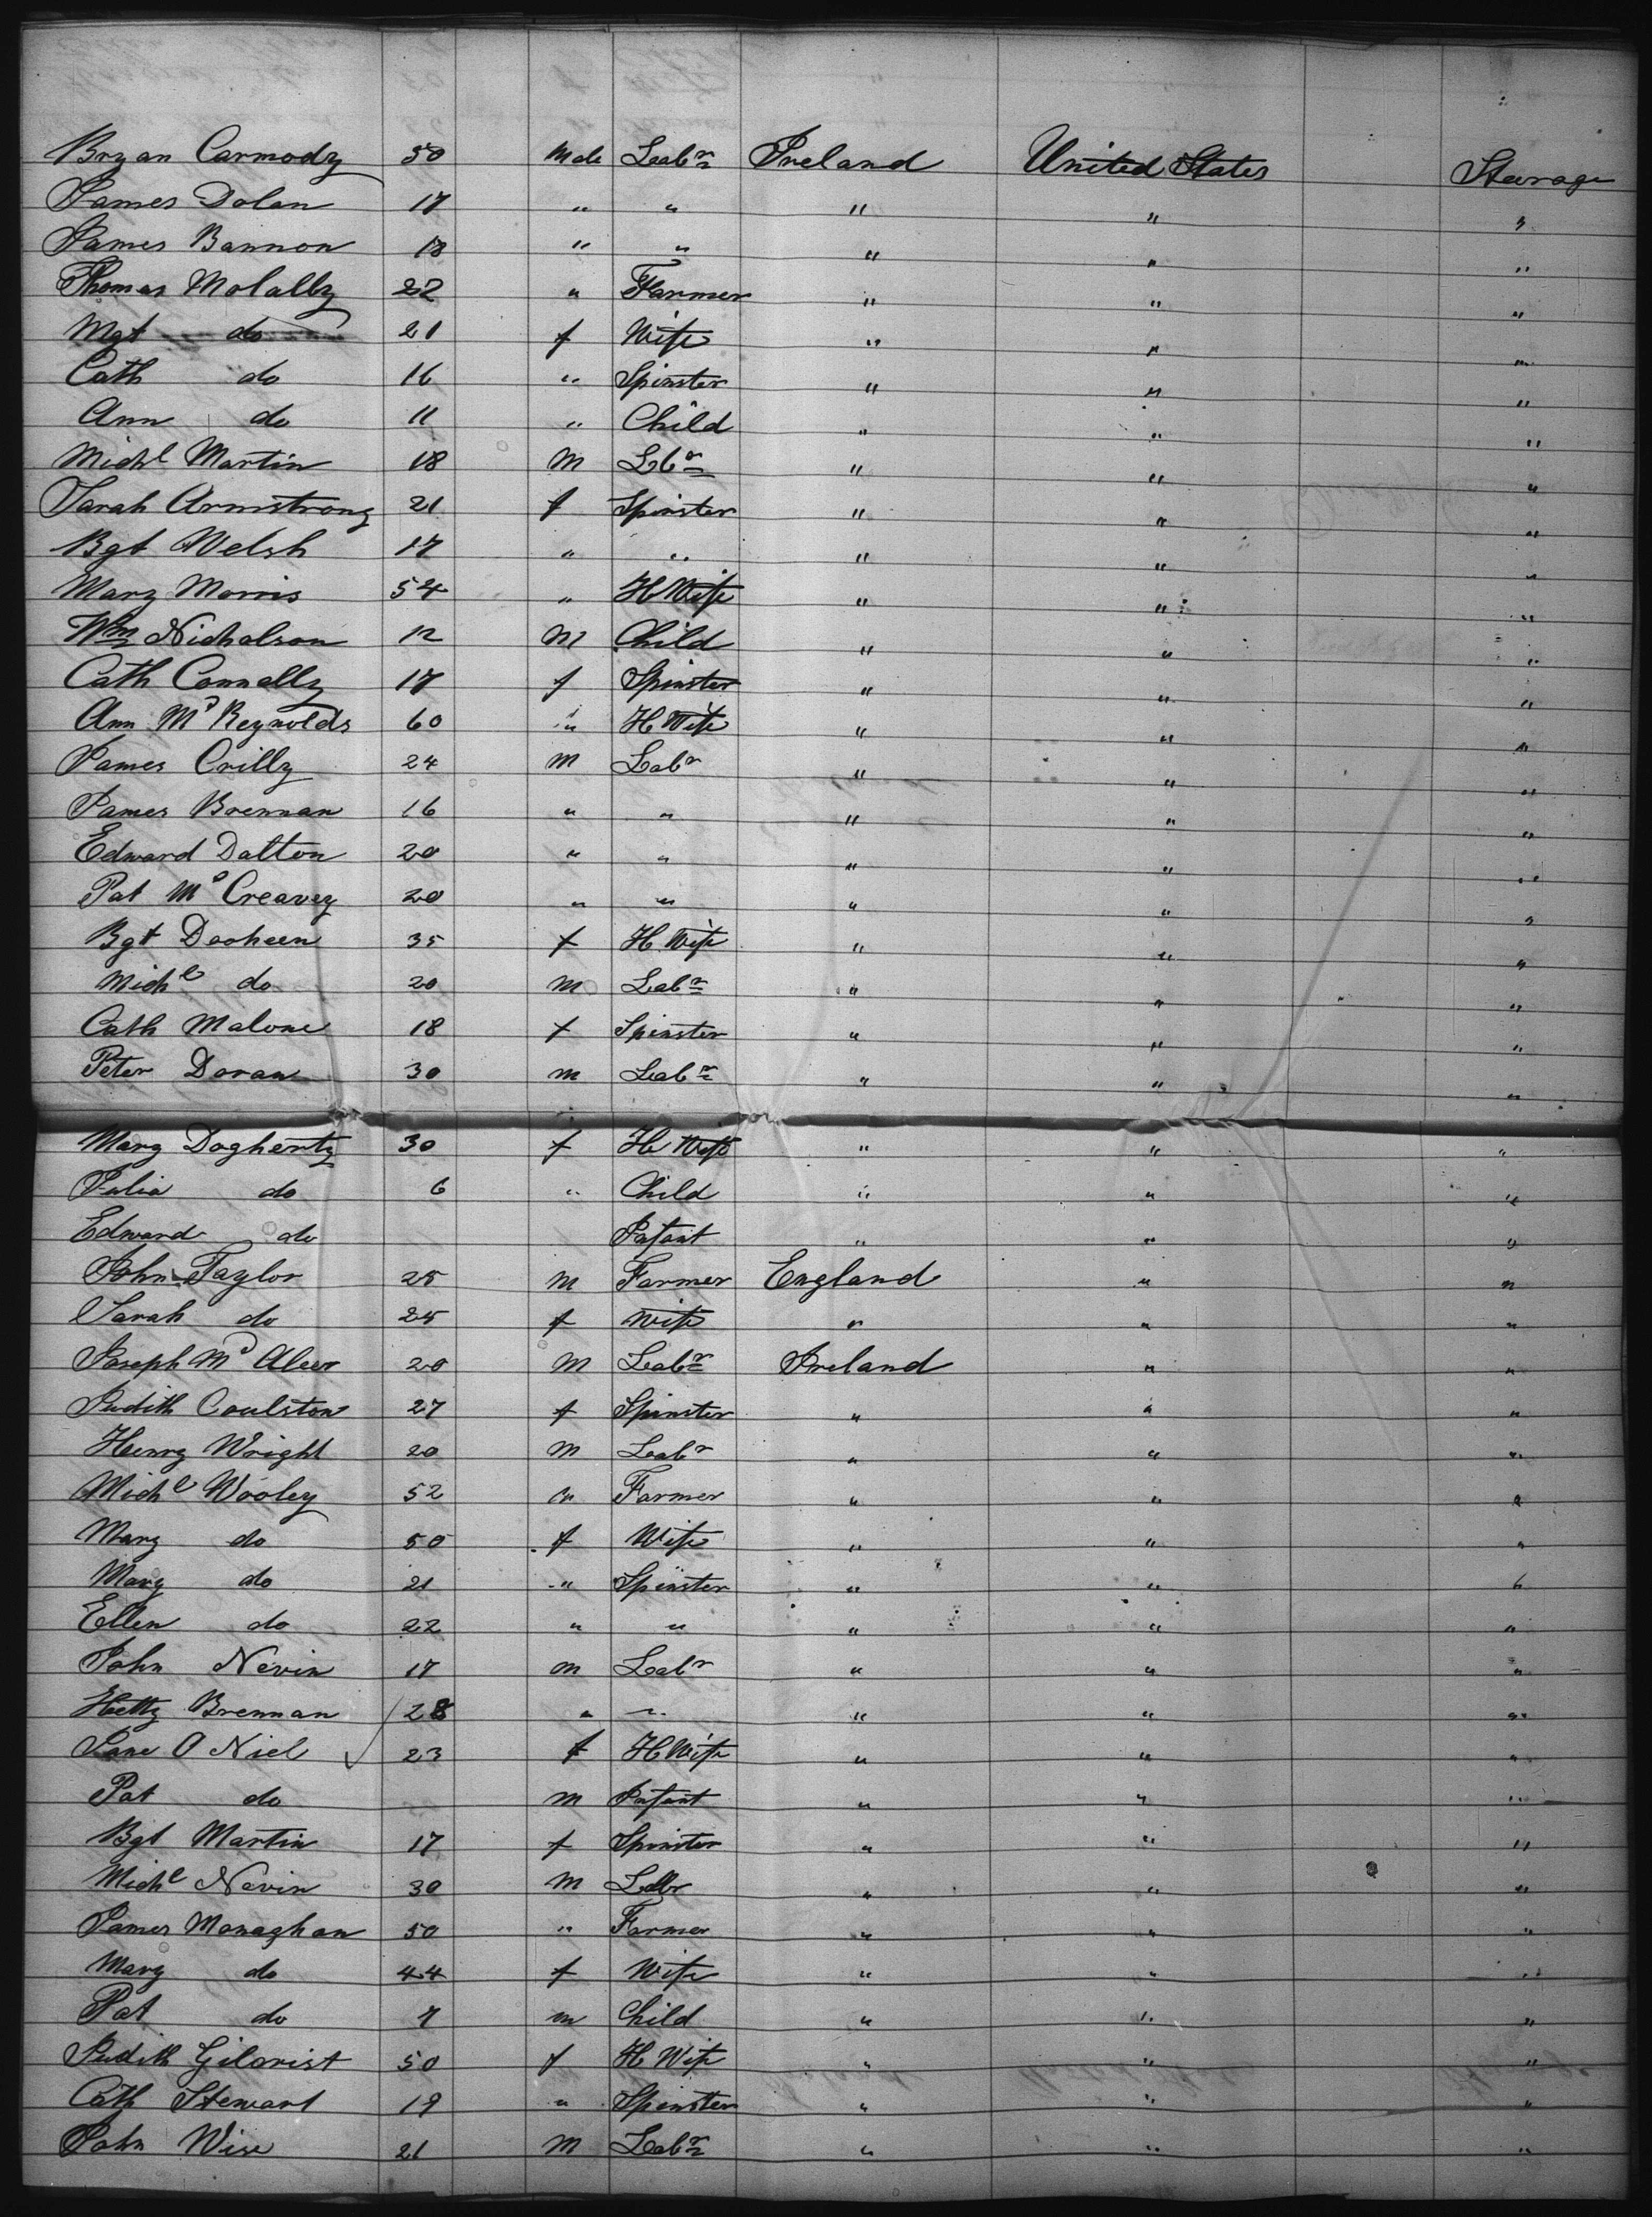 Bryan Carmody 50 Male Labr Ireland United States Steerage
James Dolan 17 " " " " "
James Bannon 18 " " " " "
Thomas Molally 22 " Farmer " " "
Mgt do 21 f Wife " " "
Cath do 16 " Spinster " " "
Ann do 11 " Child " " "
Michl Martin 18 M Lbr " " "
Sarah Armstrong 21 f Spinster " " "
Bgt Welsh 17 " " " " "
Mary Morris 54 " H Wife " " "
Wm Nicholson 12 M Child " " "
Cath Connelly 17 f Spinster " " "
Ann Mc Reynolds 60 " H Wife " " "
James Crilly 24 M Labr " " "
James Brennan 16 " " " " "
Edward Dalton 20 " " " " "
Pat Mc Creavey 20 " " " " "
Bgt Dooheen 35 f H Wife " " "
Michl do 20 M Labr " " "
Cath Malone 18 f Spinster " " "
Peter Doran 30 M Labr " " "
Mary Dogherty 30 f H Wife " " "
Julia do 6 " Child " " "
Edward do Infant " " "
John Taylor 25 M Farmer England " "
Sarah do 25 f Wife " " "
Joseph Mc Aleer 20 M Labr Ireland " "
Judith Coulston 27 f Spinster " " "
Henry Wright 20 M Labr " " "
Michl Wooley 52 m Farmer " " "
Mary do 50 f Wife " " "
Mary do 21 " Spinster " " "
Ellen do 22 " " " " "
John Nevin 17 m Labr " " "
Hetty Brennan 28 " " " " "
Jane O Niel 23 f H Wife " " "
Pat do M Infant " " "
Bgt Martin 17 f Spinster " " "
Michl Nevin 30 M Labr " " "
James Monaghan 50 " Farmer " " "
Mary do 44 f Wife " " "
Pat do 7 m Child " " "
Judith Gilcrist 50 f H Wife " " "
Cath Stewart 19 " Spinster " " "
John Wise 21 M Labr " " "